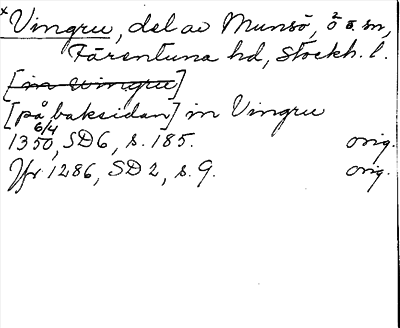 *Vingru, del av Munsö, ö o. sn,
Färentuna hd, Stockh. l.
[in Wingru]
[på baksidan] in Vingru
1350 6/4, SD 6, s. 185. orig.
Jfr 1286, SD 2, s. 9. orig.